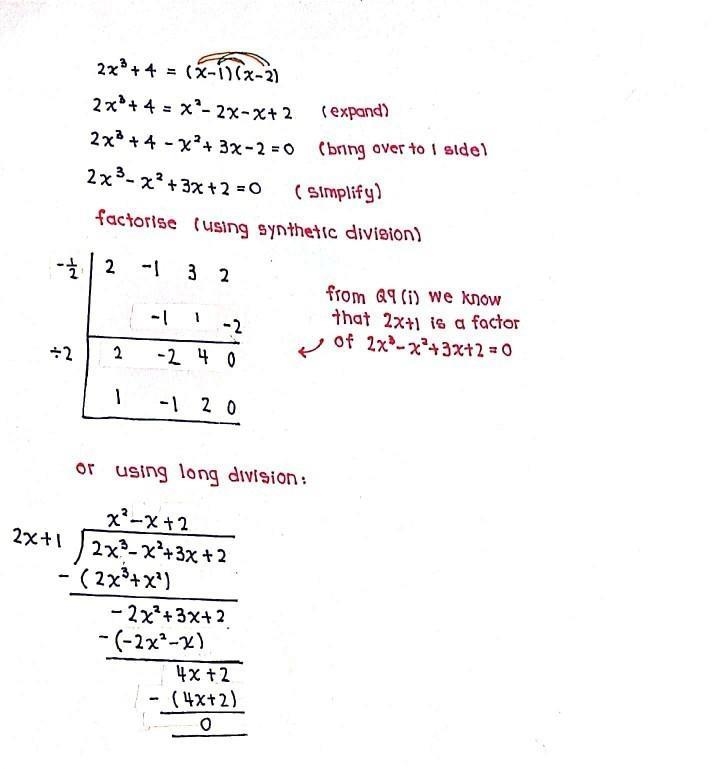 2x³ + 4 = (x-1)(x-2)
2x³ + 4 = x² - 2x - x + 2 (expand)
2x³ + 4 - x² + 3x - 2 = 0 (bring over to 1 side)
2x³ - x² + 3x + 2 = 0 (simplify)
factorise (using synthetic division)
-1/2 | 2 -1 3 2
-1 1 -2
÷2 | 2 -2 4 0
1 -1 2 0
from Q9 (i) we know
that 2x+1 is a factor
↙ of 2x³-x²+3x+2 = 0
or using long division:
x² - x + 2
2x+1 √2x³ - x² + 3x + 2
- (2x³ + x²)
- 2x² + 3x + 2
- (-2x² - x)
4x + 2
- (4x + 2)
0